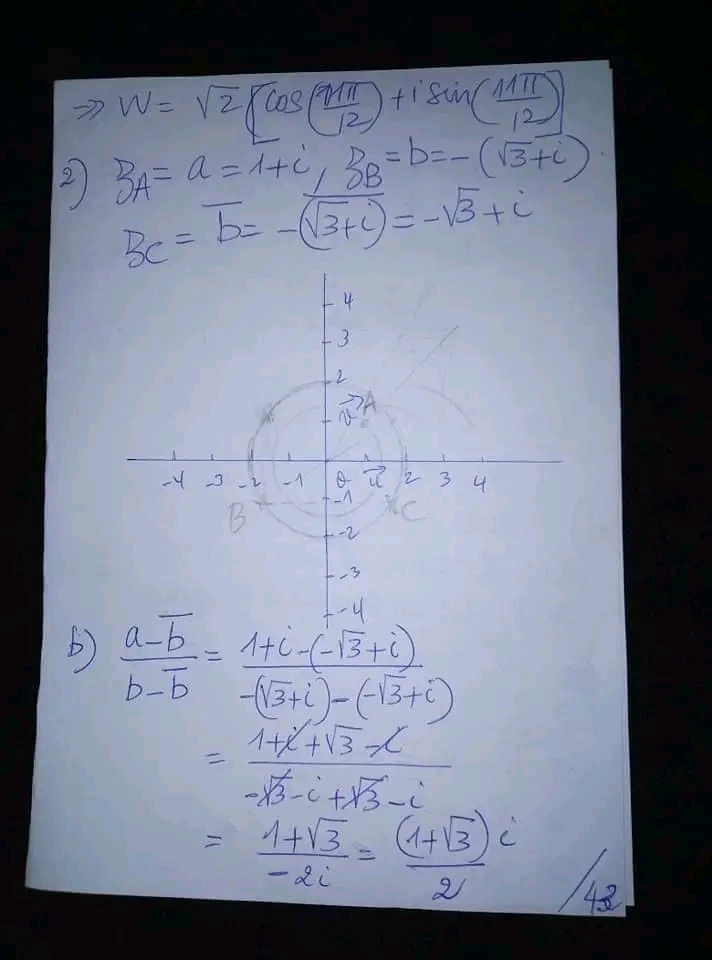 => W = √2 [cos(11π/12) + i sin(11π/12)]
2) ZA = a = 1+i, ZB = b = -(√3+i).
ZC = b̅ = -(√3+i)̅ = -√3+i
4
3
2
v⃗ A
-4 -3 -2 -1 0 u⃗ 2 3 4
B -1 C
-2
-3
-4
b) (a-b̅)/(b-b̅) = (1+i-(-√3+i))/(-(√3+i)-(-√3+i))
= (1+i+√3-i)/(-√3-i+√3-i)
= (1+√3)/(-2i) = ((1+√3)i)/2